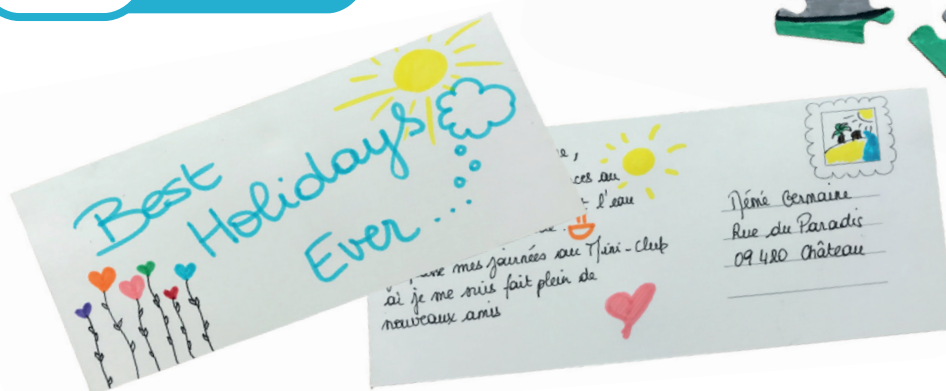 Best
Holidays
Ever...
ces au
l'eau
mes journées au Mini-Club
où je me suis fait plein de
nouveaux amis
Mémé Germaine
Rue du Paradis
09420 Château